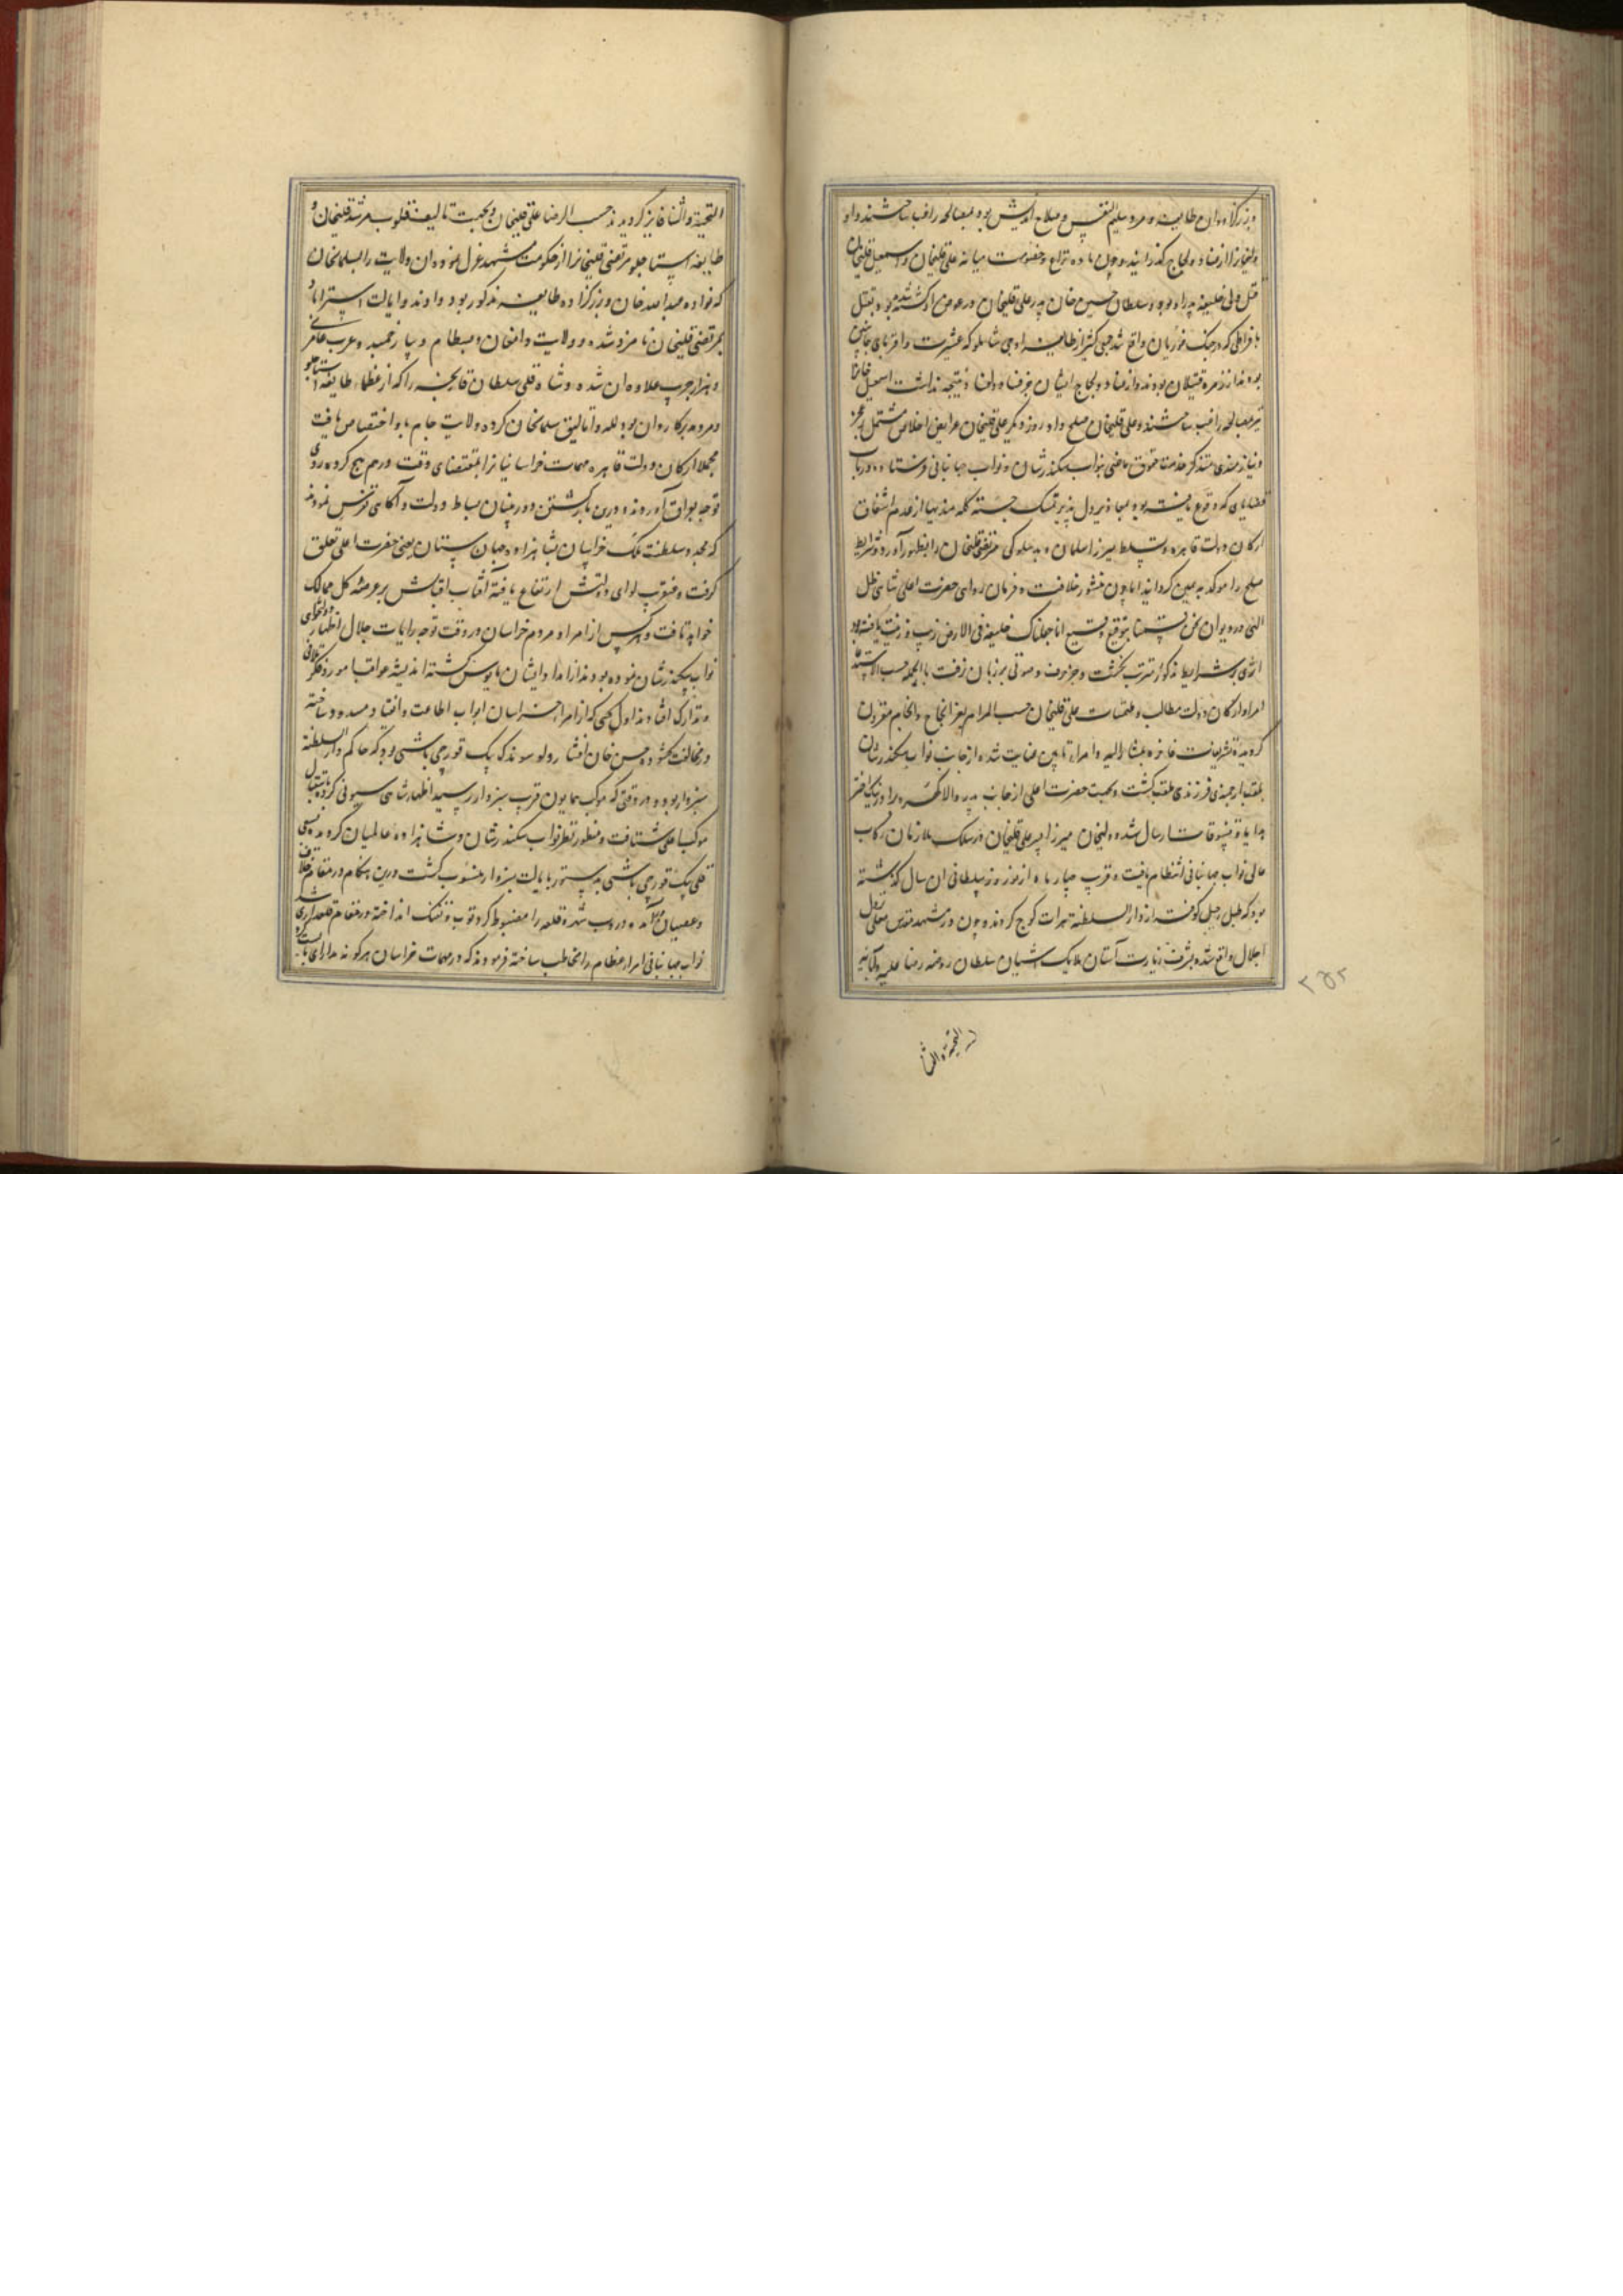 و بزرگزاده ان طایفه و مرد سلیم النفس و صلاح اندیش بود بمصالحه راغب ساختند و او
ولیخانرا از عناد و لجاج گذرانید و چون ماده نزاع و خصومت میانه علی قلیخان و اسمعیل قلیخان
قتل ولی خلیفه پدر او بود و سلطان حسین خان پدر علی قلیخان در عوض او کشته شده بود بقتل
با فراطی که در جنک غوریان واقع شد جمعی کثیر از طایفه اوجی شاملو که عشیرت و اقربای جانبین
بودند از زمره قتیلان بودند و از عناد و لجاج ایشان جز فناء نتیجه نداشت اسمعیل قلیخان
نیز بمصالحه راغب ساختند و علی قلیخان صلح داد روز دیگر علی قلیخان عرایض اخلاص مشتمل بر عجز
و نیازمندی متذکر خدمت حقوق ماضی بنواب سکندر شان و نواب جهانبانی فرستاده در باب
قضایای که وقوع یافته بود بمعاذیر دل پذیر تمسک جسته کله مندیها از عدم اشفاق
ارکان دولت قاهره و تسلط میرزا سلمان و بدسلوکی مرتضی قلیخان را بظهور آورد و شرایط
صلح را موکد به یمین گردانید اما چون منشور خلافت و فرمان روای حضرت اعلی شاهی ظل
اللهی در دیوان نحن قسمنا بتوقیع وقیع انا جعلناک خلیفة فی الارض زیب و زینت یافته بود
اثری بر شرایط مذکور مترتب نگشت و جز حرف و صوتی بر زبان نرفت بالجمله حسب الاستدعا
امرا و ارکان دولت مطالب و ملتمسات علی قلیخان حسب المرام بعز انجاح و انجام مقرون
گردیده تشریفات فاخره بمشار الیه و امراء تابین عنایت شده از جانب نواب سکندر شان
بلقب ارجمندی فرزندی ملقب گشت و بجهت حضرت اعلی از جانب پدر والا گهر و برادر نیک اختر
هدایا و تنسوقات ارسال شده و لیخان میرزا پسر علی قلیخان در سلک ملازمان رکاب
عالی نواب جهانبانی انتظام یافت و قرب چهار ماه از نوروز سلطانی ان سال گذشته
بود که طبل رحیل کوفته از دار السلطنه هرات کوچ کردند و چون در مشهد مقدس معلی نزول
اجلال واقع شده بشرف زیارت آستان ملایک آشیان سلطان روضه رضا علیه و آبائه
التحیة والثنا
۲۵۲
التحیة والثنا فایز گردیدند حسب الرضا علی قلیخان و بجهت تالیف قلوب مرشد قلیخان و
طایفه استاجلو مرتضی قلیخانرا از حکومت مشهد عزل نموده ان ولایت را بسلمانخان
که نواده عبدالله خان و بزرگزاده طایفه مذکور بود دادند و ایالت استراباد
بمرتضی قلیخان نامزد شده و ولایت دامغان و بسطام و بیارجمند و عرب عامری
و هزار جریب علاوه ان شد و شاه قلی سلطان قارنجه را که از عظماء طایفه استاجلو
و مرد مدبر کاردان بود لله و اتالیق سلمانخان کرده ولایت جام باو اختصاص یافت
مجملا ارکان دولت قاهره مهمات خراسانیانرا بمقتضای وقت درهم پیچ کرده روی
توجه بعراق آوردند و درین بازگشتن دوربینان بساط دولت و آگاهی تفرس نمودند
که مجددا سلطنت ملک خراسان بشاهزاده جهان ستان یعنی حضرت اعلی تعلق
گرفت و عنقریب لوای دولتش ارتفاع یافته آفتاب اقبالش بر عرصه کل ممالک
خواهد تافت و هر کس از امرا و مردم خراسان در وقت توجه رایات جلال اظهار دولتخواهی
نواب سکندر شان نموده بودند از امداد ایشان مایوس گشته اندیشه عواقب امور در فکر تلافی
و تدارک افتادند اول کسی که از امراء خراسان ابواب اطاعت و انقیاد مسدود ساخته
در مخالفت گشود حسن خان افشار ولد سوندک بیک قورچی باشی بود که حاکم دار السلطنه
سبزوار بود و در وقتی که موکب همایون قرب سبزوار رسید اظهار شاهی سیونی کرده باستقبال
موکب اعلی شتافت و منظور نظر نواب سکندر شان و شاهزاده عالمیان گردیده بسعی
قلی بیک قورچی باشی بدستور بایالت سبزوار منسوب گشت درین هنگام در مقام خلاف
و عصیان در آمده دروب شهر و قلعه را مضبوط کرد توپ و تفنک انداخته در مقام قلعه داری شد
نواب جهانبانی امراء عظام را مخاطب ساخته فرمودند که در مهمات خراسان هر گونه مدارای بایست کرد